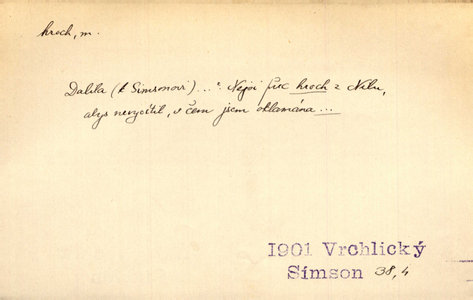 hroch, m.
Dalila (k Simsonovi)...: Nejsi síc hroch z Nilu,
abys nevycítil, v čem jsem oklamána...
1901 Vrchlický
Símson 38,4